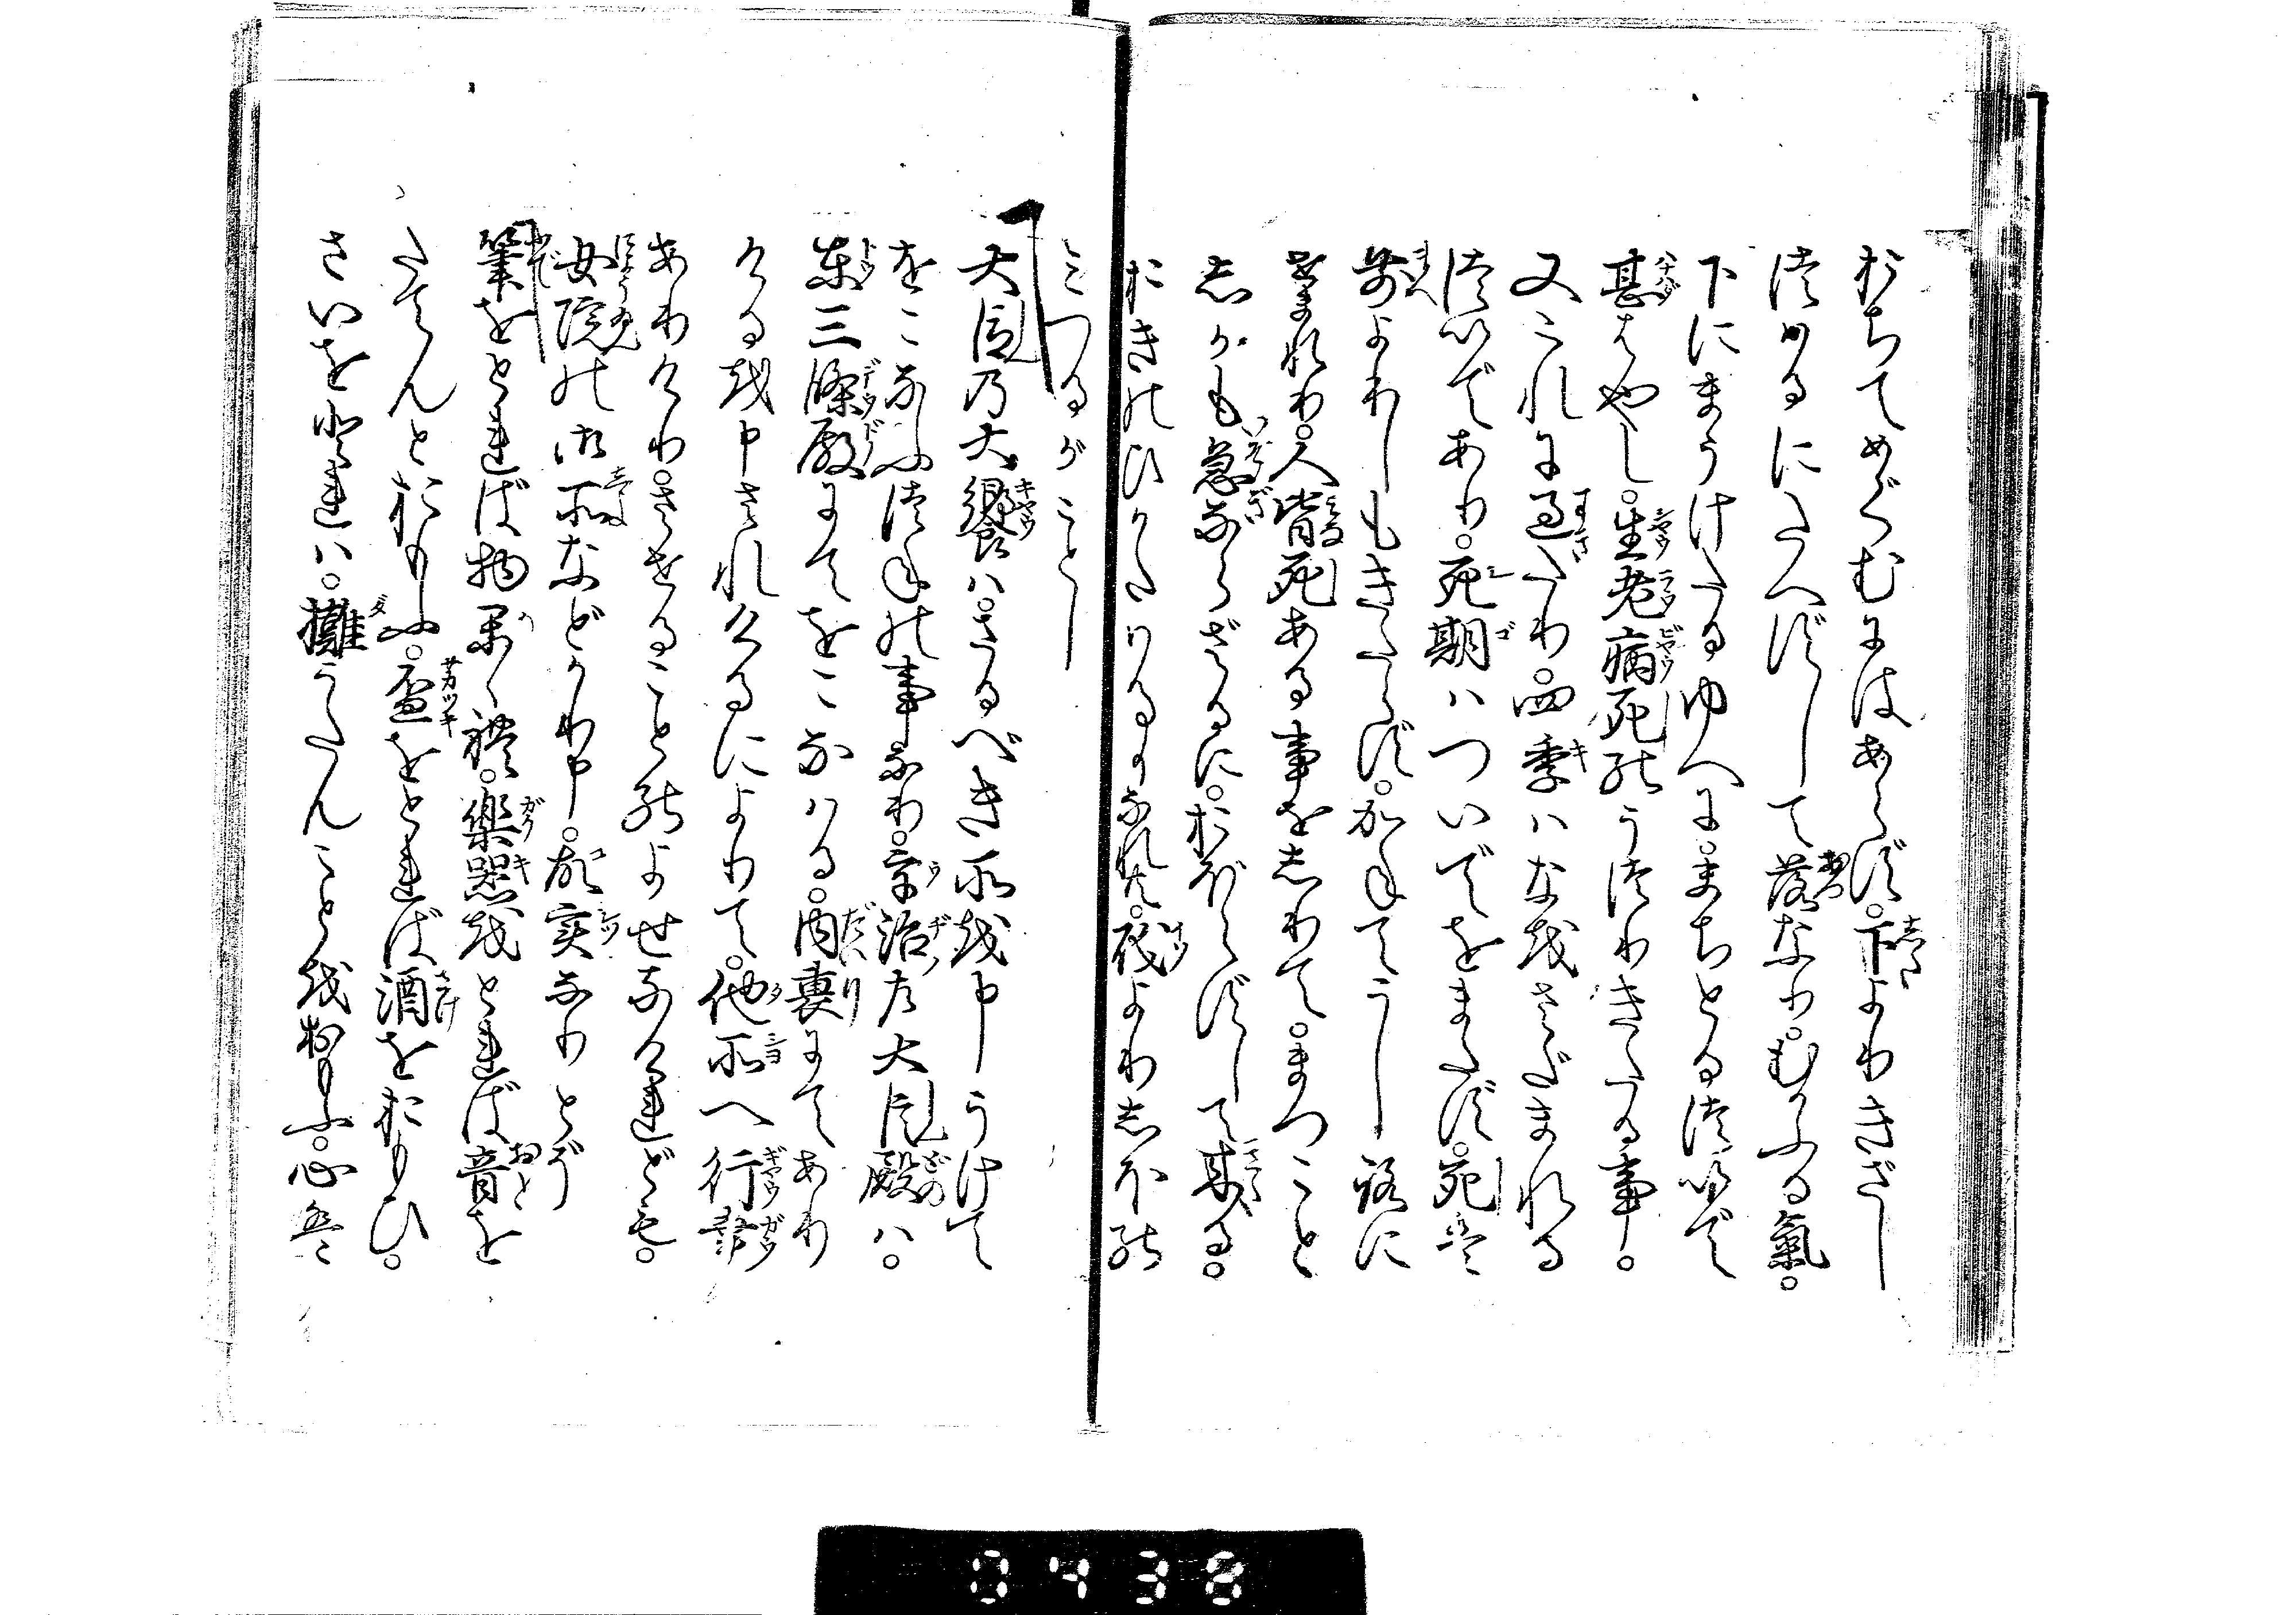 おちてめぐむにはあらず。下よりきざし
つはるにたへずして落なり。むかふる氣。
下にまうけたるゆへに。まちとるつゐで
甚はやし。生老病死のうつりきたる事。
又これに過たり。四季はなをさだまれる
つゐであり。死期はついでをまたず。死は
前よりしもきたらず。かねてうしろに
せまれり。人皆死ある事をしりて。まつこと
しかも急ならざるに。おぼえずして来る。
おきのひかたはるかなれ共。礒よりしほの
みつるがごとし
大臣の大饗は。さるべき所を申うけて
をこなふつねの事なり。宇治左大臣殿は。
東三條殿にてをこなはる。内裏にてあり
けるを申されけるによりて。他所へ行幸
ありけり。させることのよせなけれども。
女院の御所などかり申。故実なりとぞ
筆をとれば物かゝれ。樂器をとれば音を
たてんとおもふ。盃をとれば酒をおもひ。
さいをとれは。攤うたんことを思ふ。心は